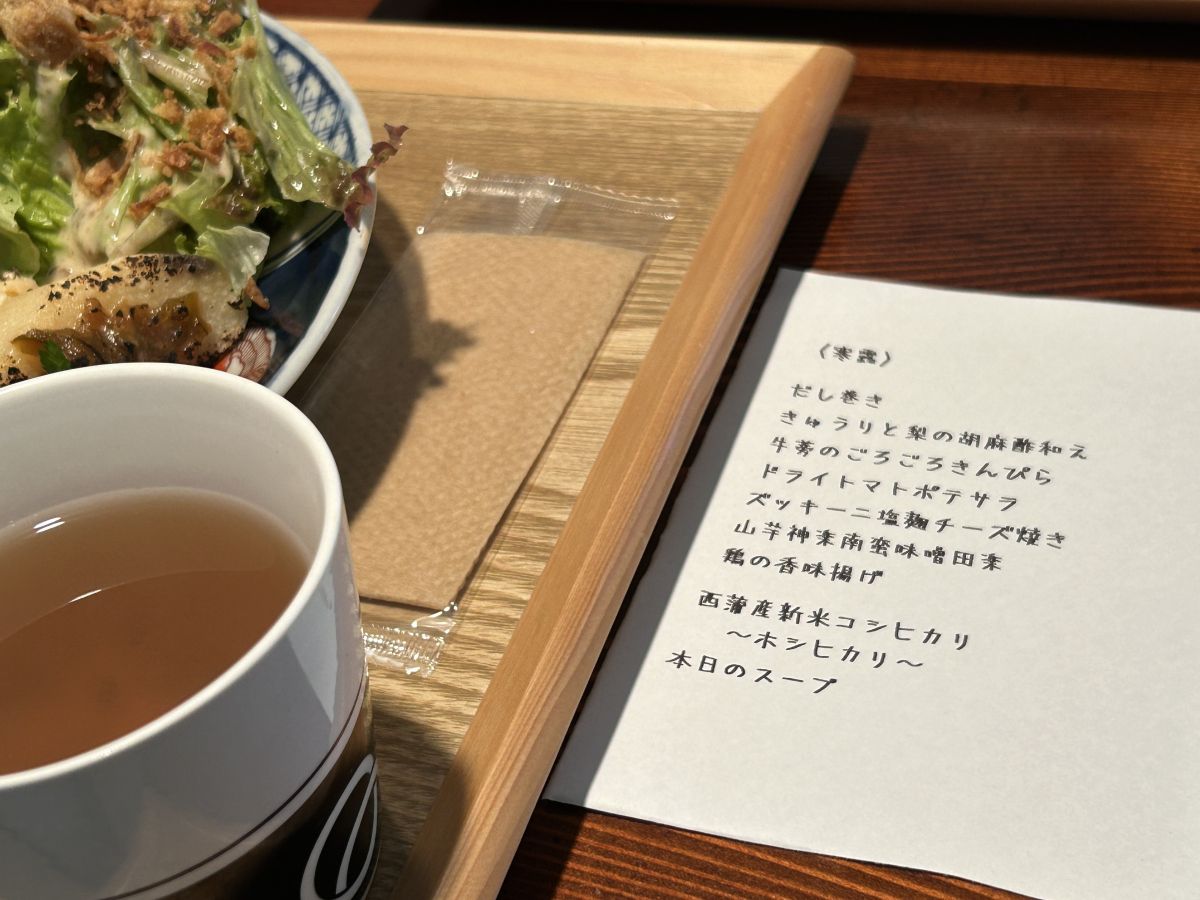 〈寒露〉
だし巻き
きゅうりと梨の胡麻酢和え
牛蒡のごろごろきんぴら
ドライトマトポテサラ
ズッキーニ塩麹チーズ焼き
山芋神楽南蛮味噌田楽
鶏の香味揚げ
西蒲産新米コシヒカリ
〜ホシヒカリ〜
本日のスープ